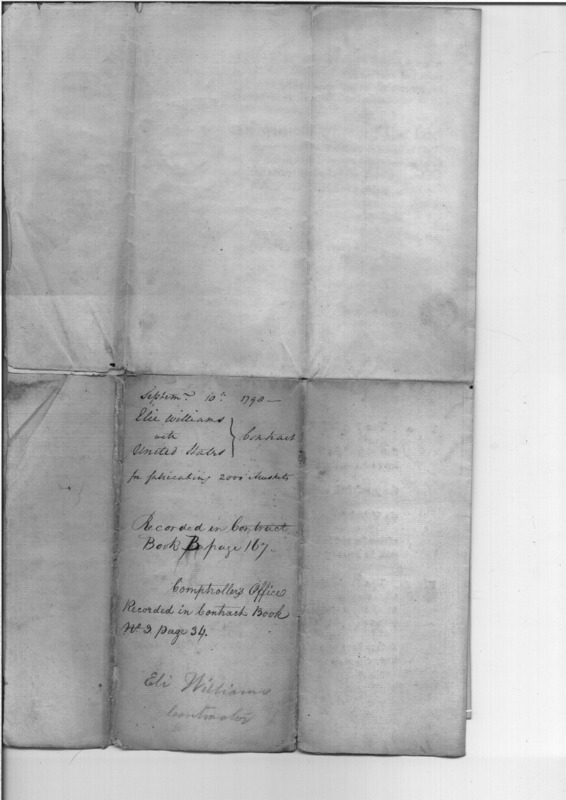 Septemr. 10th. 1798 —
Elie Williams
with
United States
} Contract
for fabricating 2000 Muskets
Recorded in Contract
Book B page 167.
Comptrollers Office
Recorded in Contract Book
No 3. page 34.
Eli Williams
Contractor